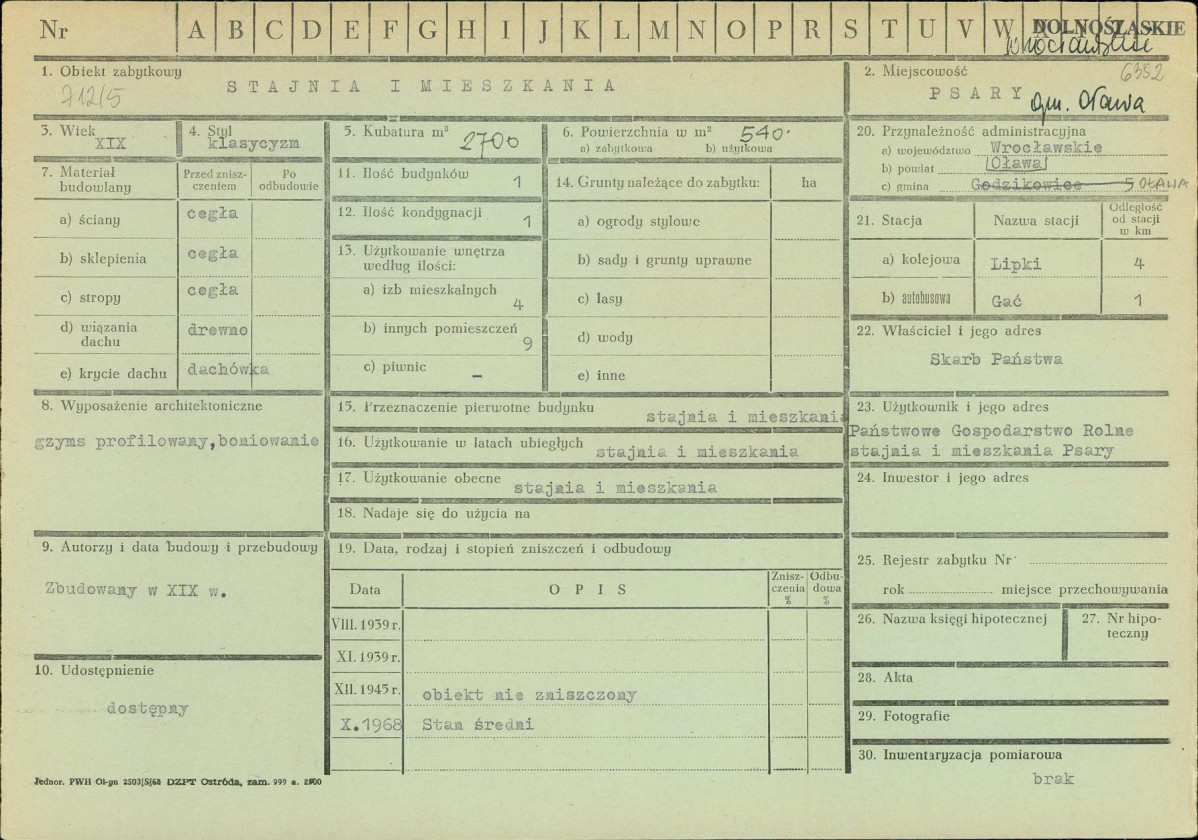 Nr A B C D E F G H I J K L M N O P R S T U V W DOLNOŚLĄSKIE
Wrocławskie
1. Obiekt zabytkowy
STAJNIA I MIESZKANIA
712/5
2. Miejscowość
6352
PSARY gm. Oława
3. Wiek
XIX
4. Styl
klasycyzm
5. Kubatura m³ 2700
6. Powierzchnia w m² 540
a) zabytkowa b) użytkowa
7. Materiał budowlany
Przed znisz-
czeniem
Po
odbudowie
a) ściany cegła
b) sklepienia cegła
c) stropy cegła
d) wiązania
dachu drewno
e) krycie dachu dachówka
8. Wyposażenie architektoniczne
gzyms profilowany,boniowanie
9. Autorzy i data budowy i przebudowy
Zbudowany w XIX w.
10. Udostępnienie
dostępny
11. Ilość budynków 1
12. Ilość kondygnacji 1
13. Użytkowanie wnętrza
według ilości:
a) izb mieszkalnych 4
b) innych pomieszczeń 9
c) piwnic –
14. Grunty należące do zabytku: ha
a) ogrody stylowe
b) sady i grunty uprawne
c) lasy
d) wody
e) inne
15. Przeznaczenie pierwotne budynku stajnia i mieszkania
16. Użytkowanie w latach ubiegłych stajnia i mieszkania
17. Użytkowanie obecne stajnia i mieszkania
18. Nadaje się do użycia na
19. Data, rodzaj i stopień zniszczeń i odbudowy
Data OPIS
Znisz-
czenia
%
Odbu-
dowa
%
VIII. 1939 r.
XI. 1939 r.
XII. 1945 r. obiekt nie zniszczony
X.1968 Stan średni
20. Przynależność administracyjna
a) województwo Wrocławskie
b) powiat Oława
c) gmina Godzikowice 5 OŁAWA
21. Stacja Nazwa stacji
Odległość
od stacji
w km
a) kolejowa Lipki 4
b) autobusowa Gać 1
22. Właściciel i jego adres
Skarb Państwa
23. Użytkownik i jego adres
Państwowe Gospodarstwo Rolne
stajnia i mieszkania Psary
24. Inwestor i jego adres
25. Rejestr zabytku Nr
rok miejsce przechowywania
26. Nazwa księgi hipotecznej
27. Nr hipo-
teczny
28. Akta
29. Fotografie
30. Inwentaryzacja pomiarowa
brak
Jednor. PWH Ol-gn 2503|S|68 DZPT Ostróda, zam. 999 a. 2500